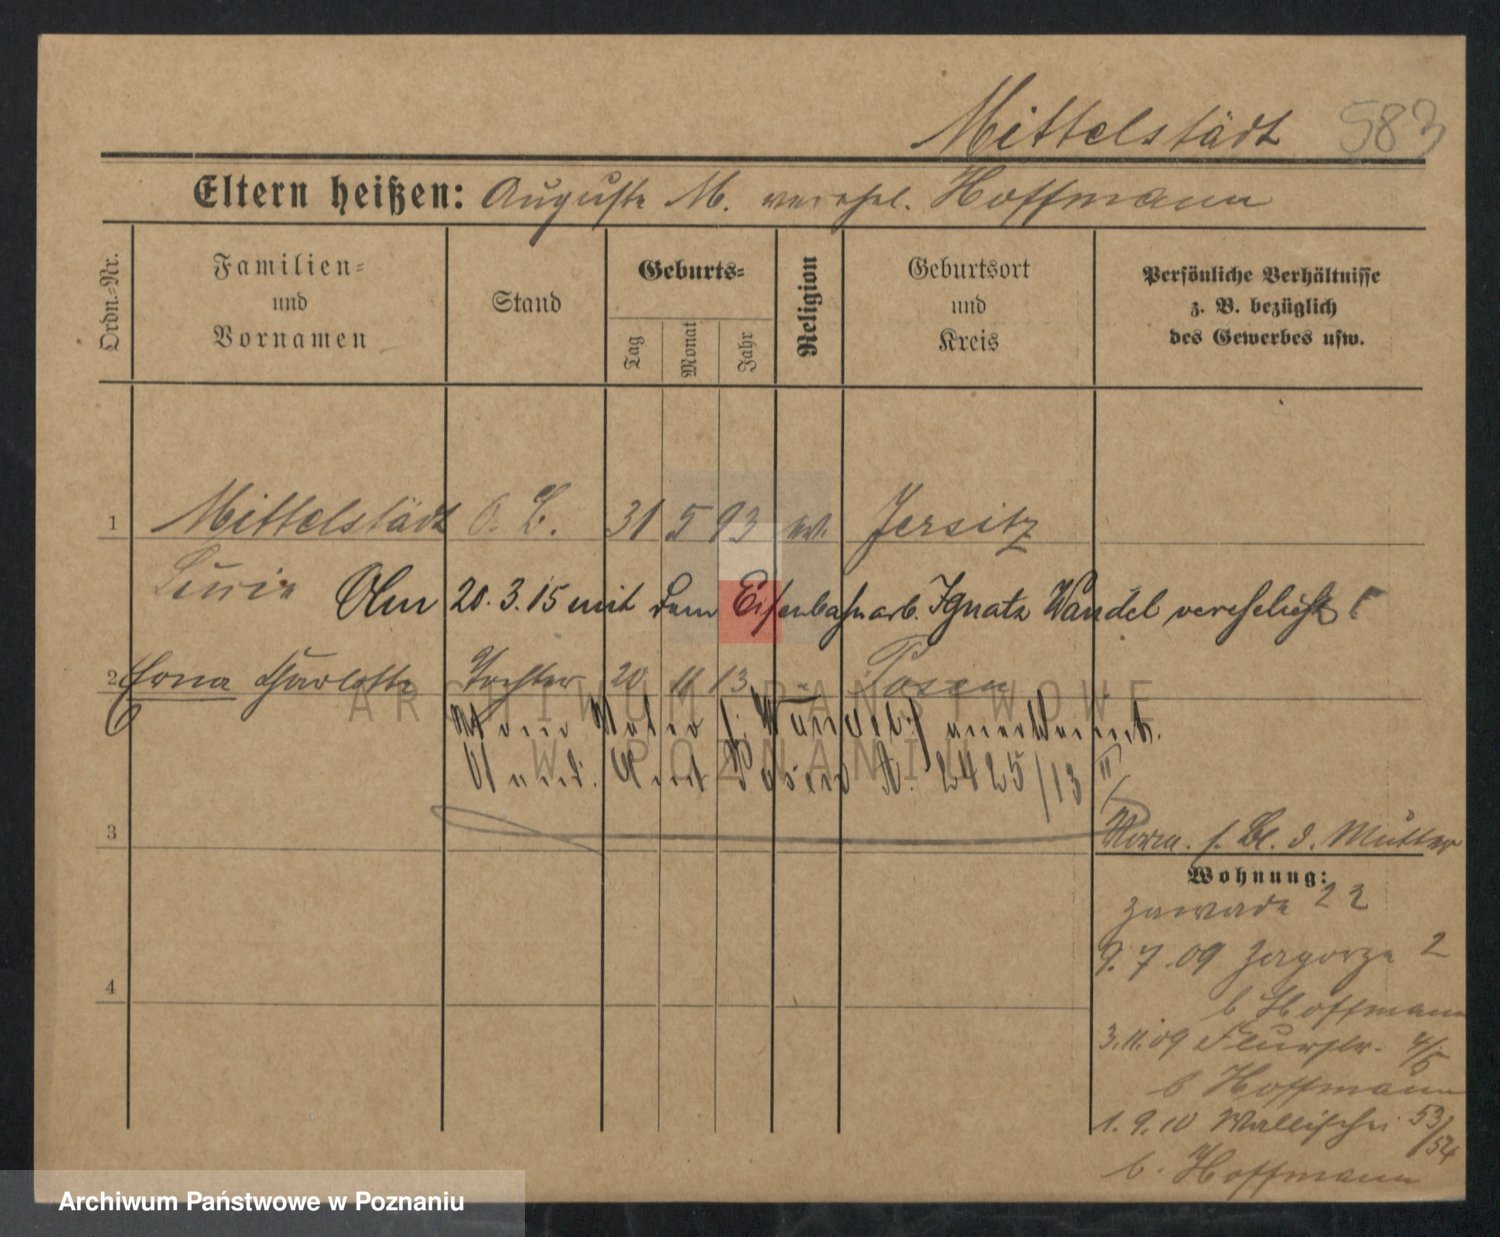 Mittelstädt 583
Eltern heißen: Auguste M. verehel. Hoffmann
Ordn.-Nr.
Familien- und Vornamen
Stand
Geburts-
Tag
Monat
Jahr
Religion
Geburtsort und Kreis
Persönliche Verhältnisse z. B. bezüglich des Gewerbes usw.
1 Mittelstädt O. B. 31 5 93 ev. Jersitz
Am 20.3.15 mit dem Eisenbahnarb. Ignatz Wandel verehelicht
2 Erna Charlotte Tochter 20 11 13 " Posen
2425/13
3
Mutter
Wohnung:
Zawade 22
9.7.09 Zagorze 2
b Hoffmann
3.11.09 Flurstr. 4/5
b Hoffmann
4
1.9.10 Wallischei 53/54
b. Hoffmann
ARCHIWUM PAŃSTWOWE
W POZNANIU
Archiwum Państwowe w Poznaniu